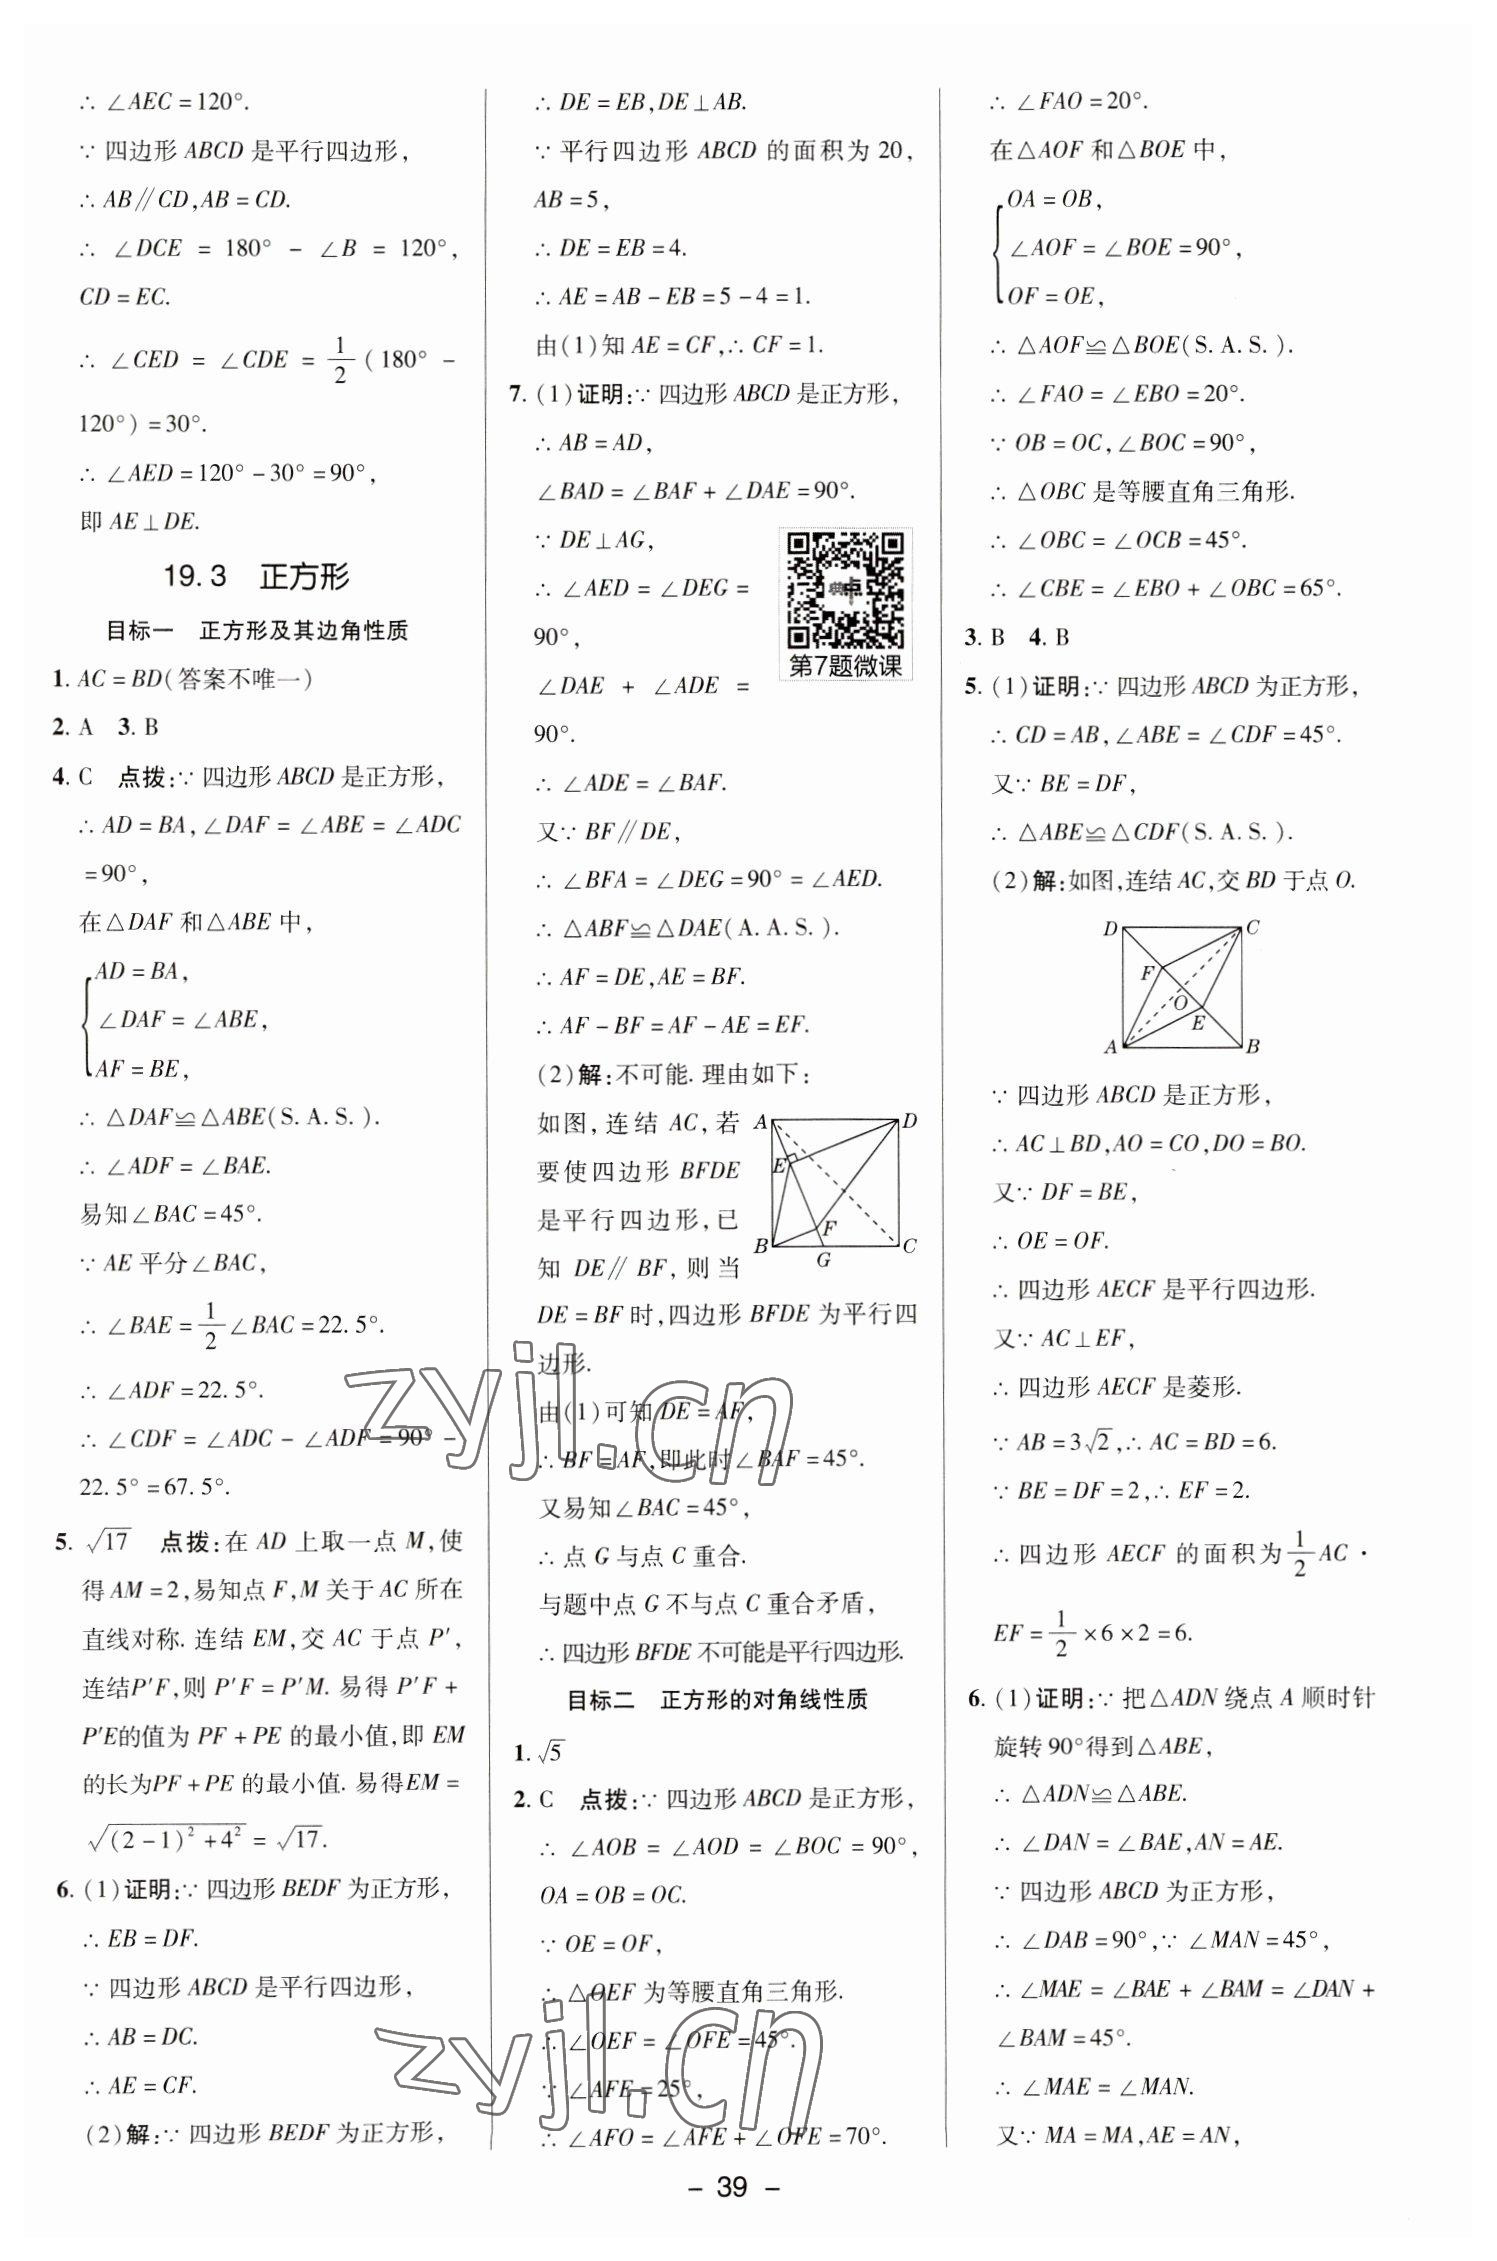 ∴ ∠AEC=120°.
∵ 四边形 ABCD 是平行四边形,
∴ AB∥CD,AB=CD.
∴ ∠DCE = 180° - ∠B = 120°,
CD=EC.
∴ ∠CED = ∠CDE = 1/2 (180° -
120°)=30°.
∴ ∠AED=120°-30°=90°,
即 AE⊥DE.
19.3 正方形
目标一 正方形及其边角性质
1. AC=BD(答案不唯一)
2. A 3. B
4. C 点拨:∵ 四边形 ABCD 是正方形,
∴ AD=BA,∠DAF=∠ABE=∠ADC
=90°,
在△DAF 和△ABE 中,
AD=BA,
∠DAF=∠ABE,
AF=BE,
∴ △DAF≌△ABE(S.A.S.).
∴ ∠ADF=∠BAE.
易知∠BAC=45°.
∵ AE 平分∠BAC,
∴ ∠BAE=1/2∠BAC=22.5°.
∴ ∠ADF=22.5°.
∴ ∠CDF=∠ADC-∠ADF=90°-
22.5°=67.5°.
5. √17 点拨:在 AD 上取一点 M,使
得 AM=2,易知点 F,M 关于 AC 所在
直线对称. 连结 EM,交 AC 于点 P′,
连结P′F,则 P′F=P′M. 易得 P′F+
P′E的值为 PF+PE 的最小值,即 EM
的长为PF+PE 的最小值. 易得EM=
√((2-1)²+4²)=√17.
6. (1)证明:∵ 四边形 BEDF 为正方形,
∴ EB=DF.
∵ 四边形 ABCD 是平行四边形,
∴ AB=DC.
∴ AE=CF.
(2)解:∵ 四边形 BEDF 为正方形,
∴ DE=EB,DE⊥AB.
∵ 平行四边形 ABCD 的面积为 20,
AB=5,
∴ DE=EB=4.
∴ AE=AB-EB=5-4=1.
由(1)知 AE=CF,∴ CF=1.
7. (1)证明:∵ 四边形 ABCD 是正方形,
∴ AB=AD,
∠BAD=∠BAF+∠DAE=90°.
∵ DE⊥AG,
∴ ∠AED = ∠DEG =
90°,
∠DAE + ∠ADE =
90°.
典点
第7题微课
∴ ∠ADE=∠BAF.
又∵ BF∥DE,
∴ ∠BFA=∠DEG=90°=∠AED.
∴ △ABF≌△DAE(A.A.S.).
∴ AF=DE,AE=BF.
∴ AF-BF=AF-AE=EF.
(2)解:不可能. 理由如下:
如图,连结 AC,若
要使四边形 BFDE
是平行四边形,已
知 DE∥BF,则当
A D
E
F
B G C
DE=BF 时,四边形 BFDE 为平行四
边形.
由(1)可知 DE=AF,
∴ BF=AF,即此时∠BAF=45°.
又易知∠BAC=45°,
∴ 点 G 与点 C 重合.
与题中点 G 不与点 C 重合矛盾,
∴ 四边形 BFDE 不可能是平行四边形.
目标二 正方形的对角线性质
1. √5
2. C 点拨:∵ 四边形 ABCD 是正方形,
∴ ∠AOB = ∠AOD = ∠BOC = 90°,
OA=OB=OC.
∵ OE=OF,
∴ △OEF 为等腰直角三角形.
∴ ∠OEF=∠OFE=45°.
∵ ∠AFE=25°,
∴ ∠AFO=∠AFE+∠OFE=70°.
∴ ∠FAO=20°.
在△AOF 和△BOE 中,
OA=OB,
∠AOF=∠BOE=90°,
OF=OE,
∴ △AOF≌△BOE(S.A.S.).
∴ ∠FAO=∠EBO=20°.
∵ OB=OC,∠BOC=90°,
∴ △OBC 是等腰直角三角形.
∴ ∠OBC=∠OCB=45°.
∴ ∠CBE=∠EBO+∠OBC=65°.
3. B 4. B
5. (1)证明:∵ 四边形 ABCD 为正方形,
∴ CD=AB,∠ABE=∠CDF=45°.
又∵ BE=DF,
∴ △ABE≌△CDF(S.A.S.).
(2)解:如图,连结 AC,交 BD 于点 O.
D C
F
O
E
A B
∵ 四边形 ABCD 是正方形,
∴ AC⊥BD,AO=CO,DO=BO.
又∵ DF=BE,
∴ OE=OF.
∴ 四边形 AECF 是平行四边形.
又∵ AC⊥EF,
∴ 四边形 AECF 是菱形.
∵ AB=3√2,∴ AC=BD=6.
∵ BE=DF=2,∴ EF=2.
∴ 四边形 AECF 的面积为1/2 AC·
EF=1/2×6×2=6.
6. (1)证明:∵ 把△ADN 绕点 A 顺时针
旋转 90°得到△ABE,
∴ △ADN≌△ABE.
∴ ∠DAN=∠BAE,AN=AE.
∵ 四边形 ABCD 为正方形,
∴ ∠DAB=90°,∵ ∠MAN=45°,
∴ ∠MAE=∠BAE+∠BAM=∠DAN+
∠BAM=45°.
∴ ∠MAE=∠MAN.
又∵ MA=MA,AE=AN,
zyjl.cn
zyjl.cn
- 39 -